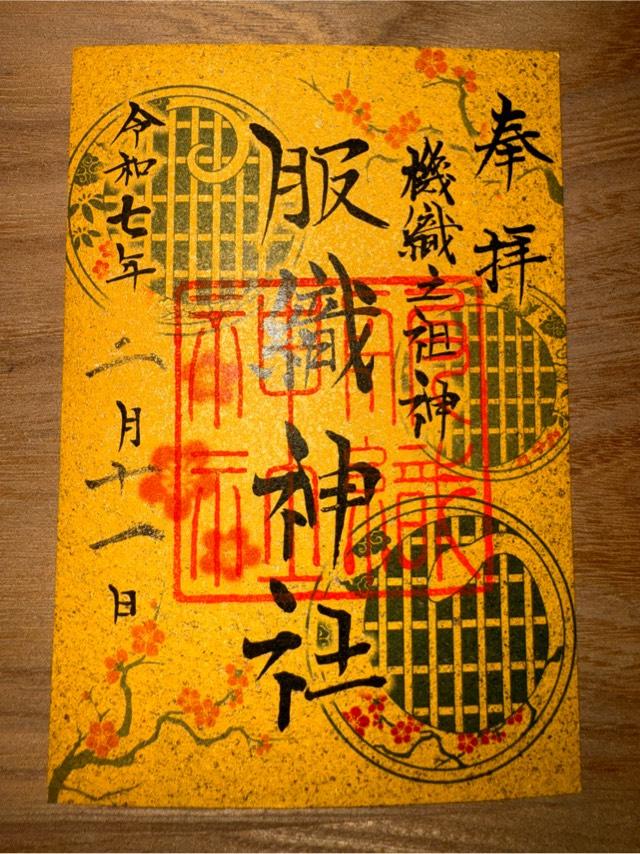 奉拝
機織之祖神
服織神社
令和七年 二月十一日